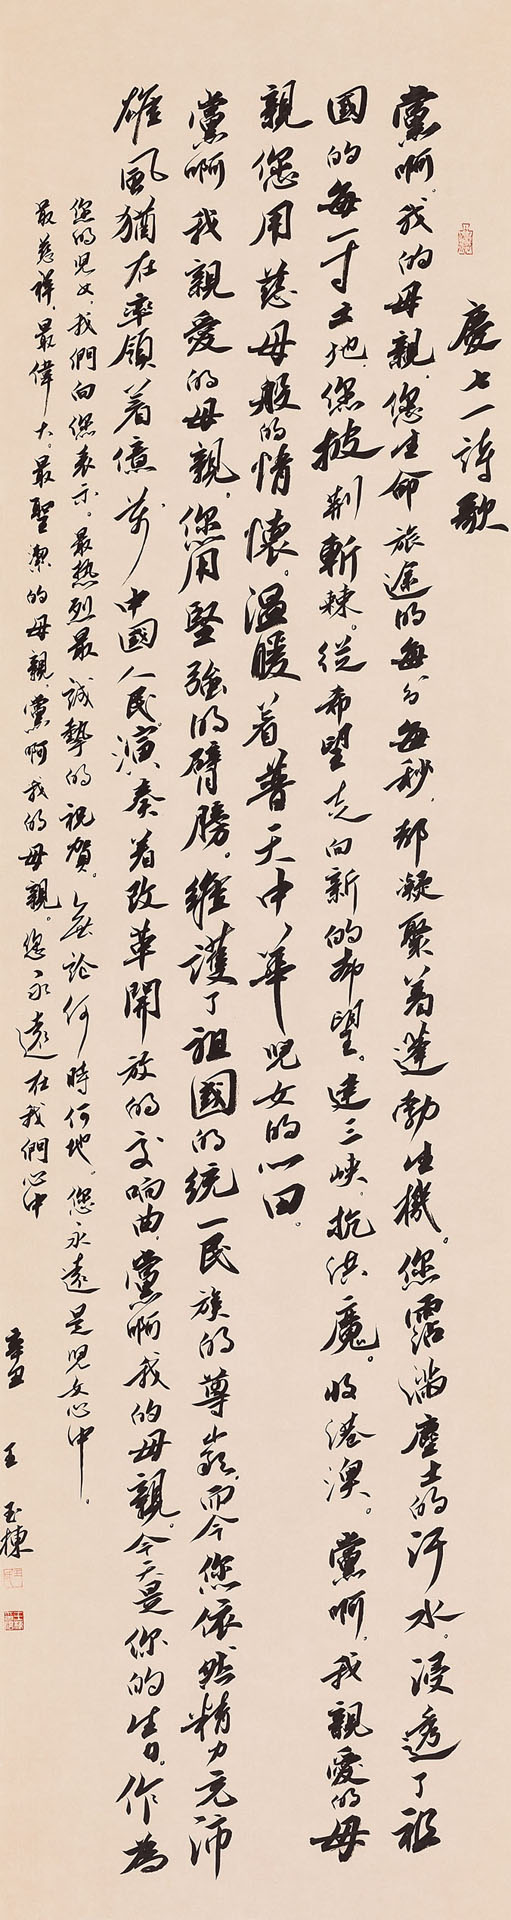 慶七一詩歌
黨啊。我的母親。您生命旅途的每分每秒，都凝聚着蓬勃生機。您霑滿塵土的汗水。浸透了祖
國的每一寸土地。您披荆斬棘。從希望走向新的希望。建三峽。抗洪魔。收港澳。黨啊，我親愛的母
親您用慈母般的情懷。温暖着普天中華兒女的心田。
黨啊我親愛的母親。您用堅強的臂膀。維護了祖國的統一民族的尊嚴，而今您依然精力充沛
雄風猶在率領着億萬中國人民。演奏着改革開放的交响曲，黨啊我的母親。今天是你的生日。作為
您的兒女，我們向您表示。最热烈最誠摯的祝賀。無論何時何地。您永遠是兒女心中。
最慈祥，最偉大。最聖潔的母親，黨啊我的母親。您永遠在我們心中
辛丑 王玉棟